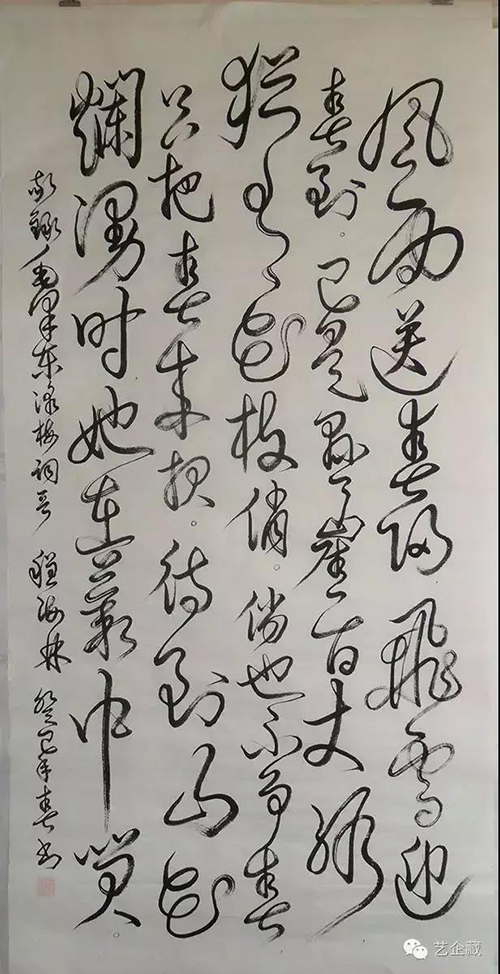 风雨送春归飛雪迎
春到。已是悬崖百丈冰
猶有花枝俏。俏也不争春
只把春来报。待到山花
爛漫时她在叢中笑。
敬録毛泽东咏梅词 程海林 癸巳年春书
艺企藏